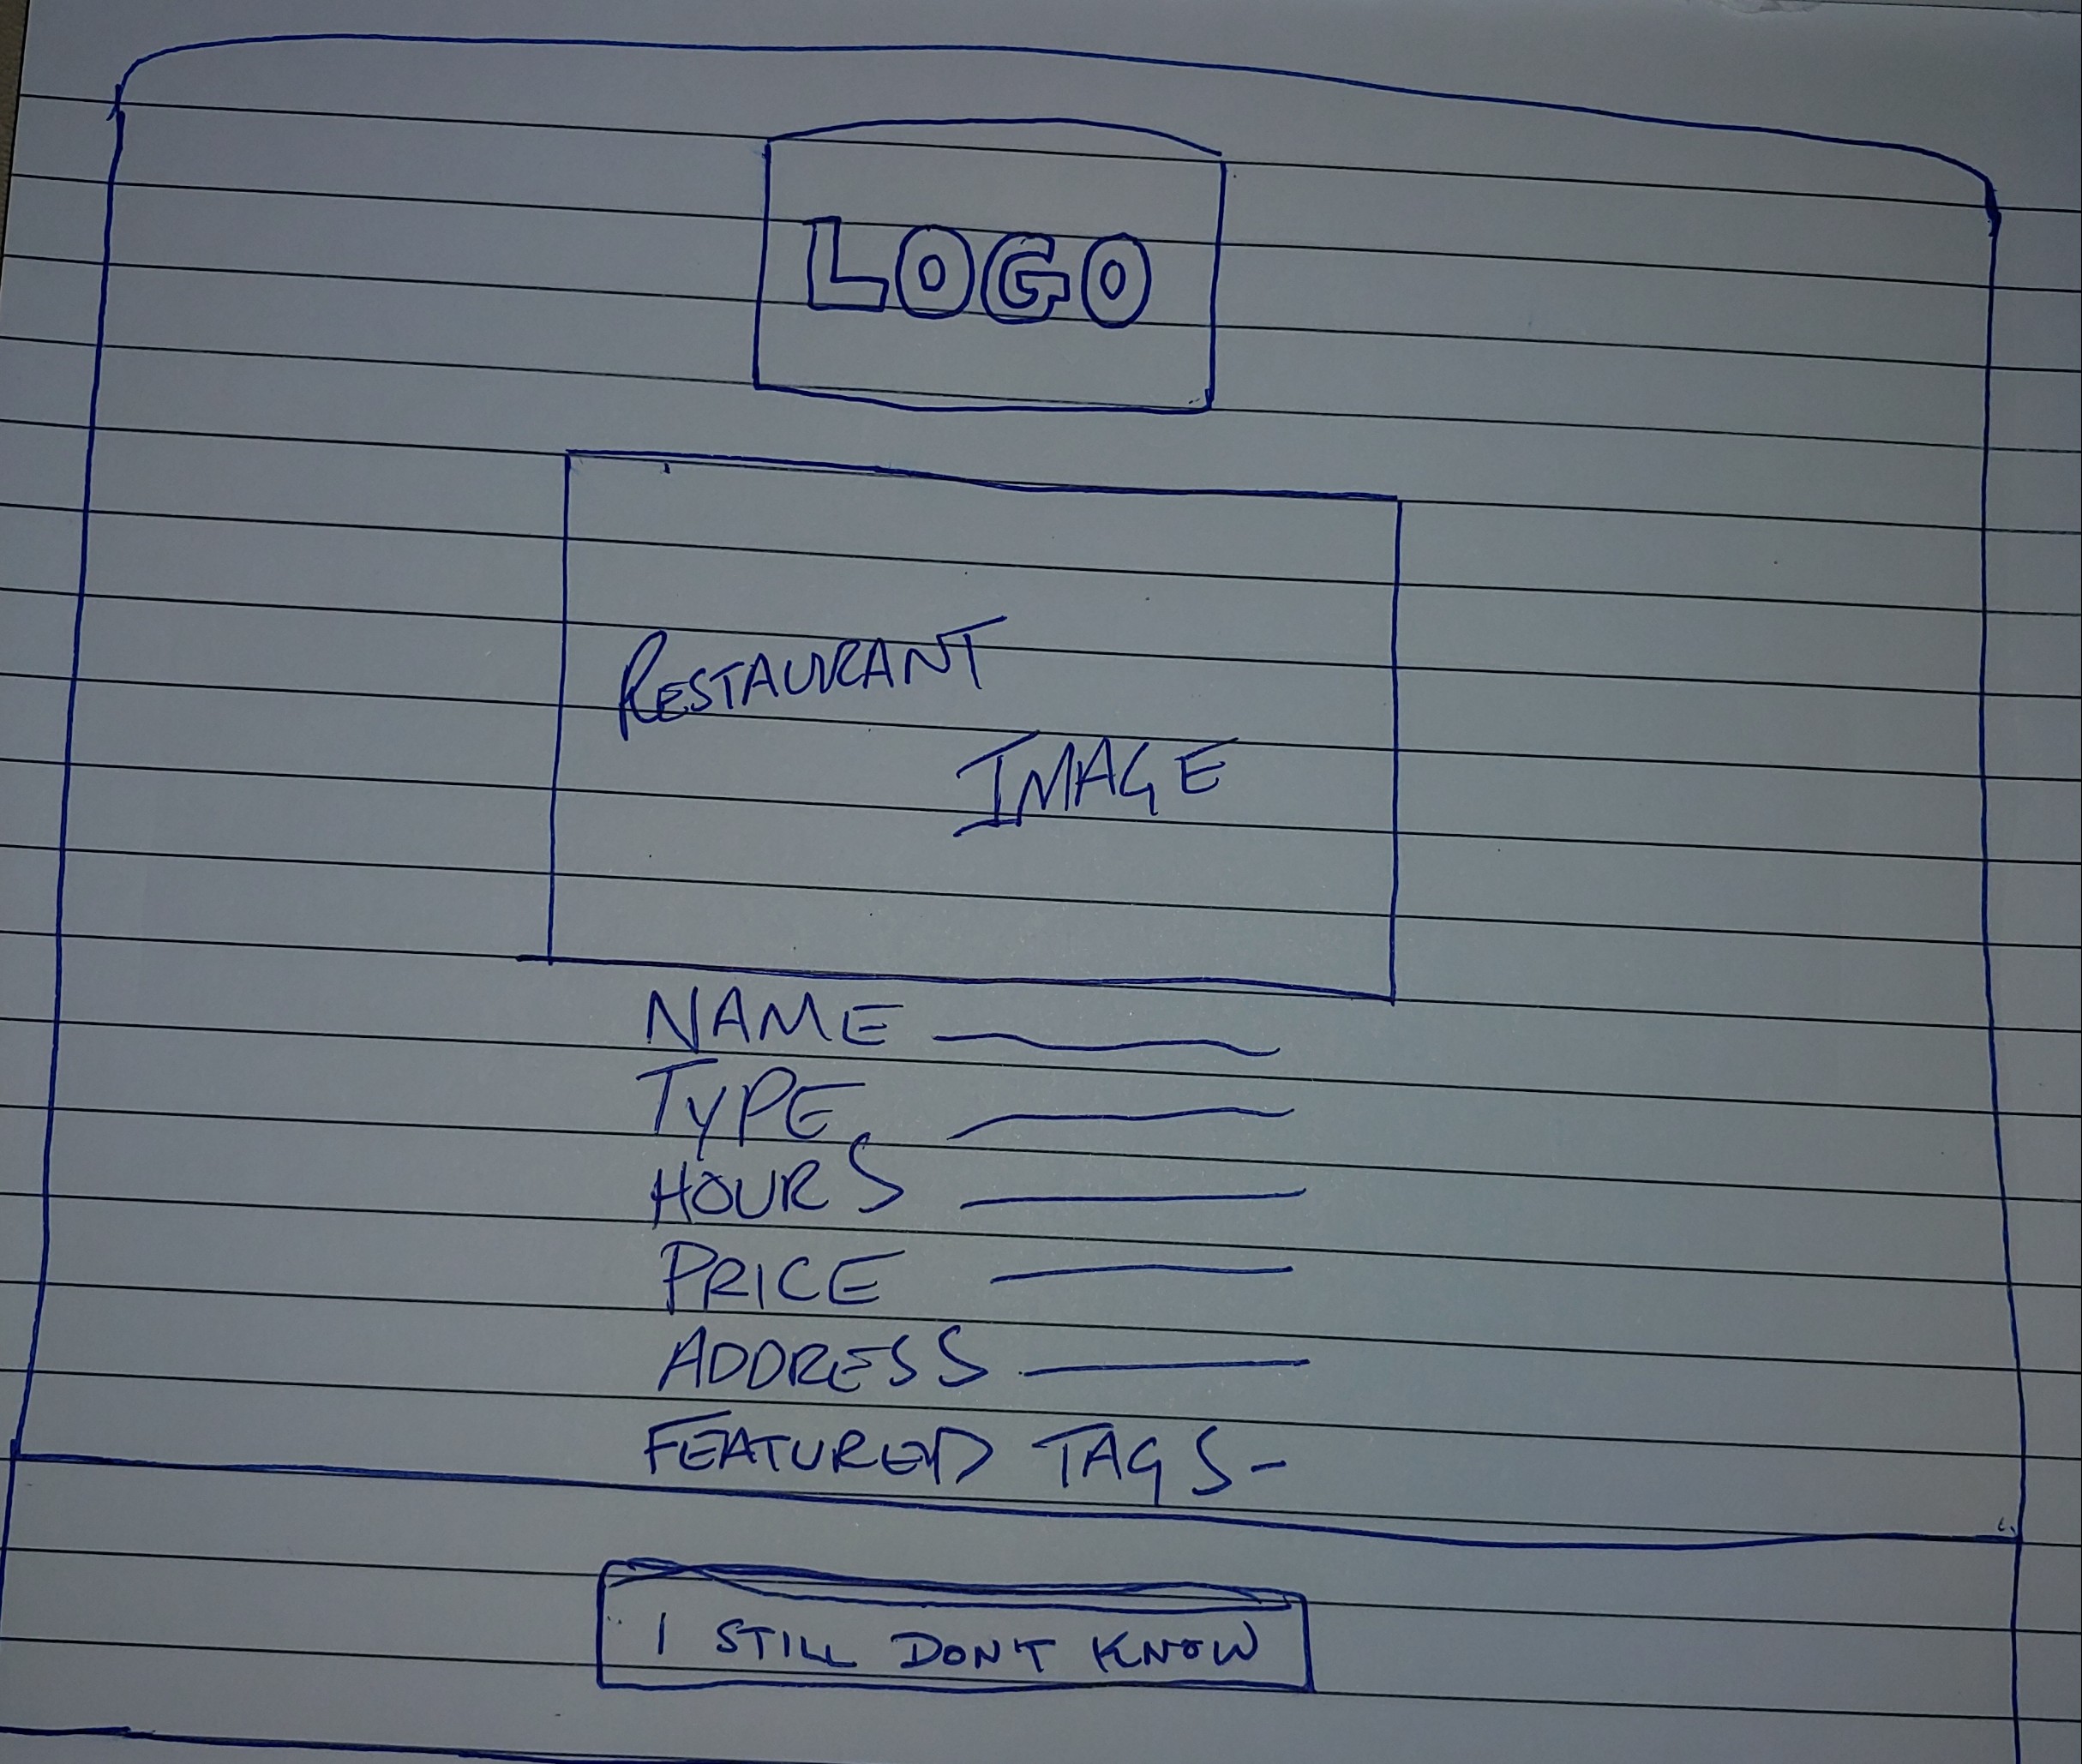 LOGO
RESTAURANT
IMAGE
NAME
TYPE
HOURS
PRICE
ADDRESS
FEATURED TAGS-
I STILL DON'T KNOW